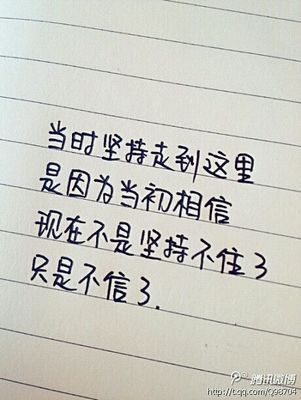 当时坚持走到这里
是因为当初相信
现在不是坚持不住了
只是不信了.
腾讯微博
http://t.qq.com/Q98704